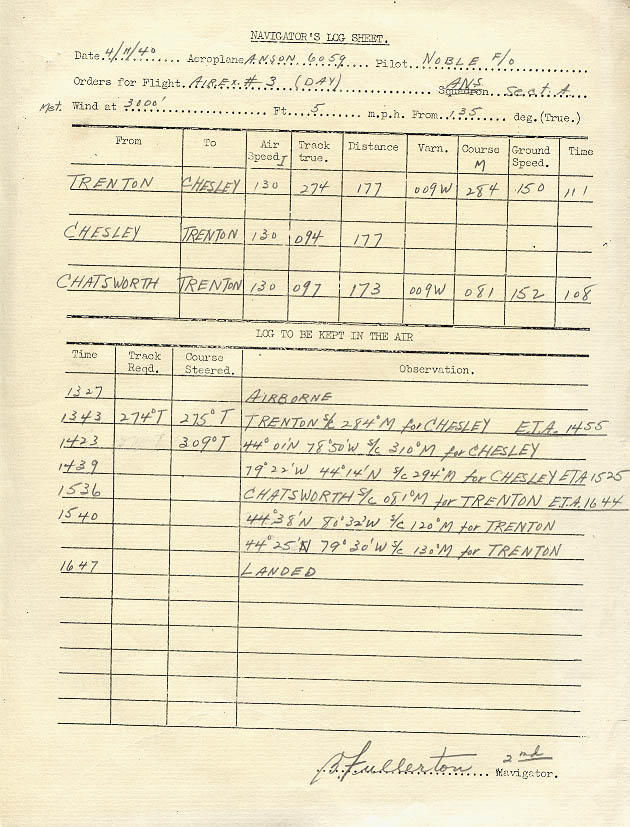 NAVIGATOR'S LOG SHEET.
Date 4/11/40 Aeroplane ANSON 6059 Pilot NOBLE F/O
Orders for Flight. AIREX. # 3 (DAY) ANS
Squadron. Sect. A
Met. Wind at 3000' Ft. 5 m.p.h. From 135 deg.(True.)
From To Air Speed I Track true. Distance Varn. Course M Ground Speed. Time
TRENTON CHESLEY 130 274 177 009W 284 150 111
CHESLEY TRENTON 130 094 177
CHATSWORTH TRENTON 130 097 173 009W 081 152 108
LOG TO BE KEPT IN THE AIR
Time Track Reqd. Course Steered. Observation.
1327 AIRBORNE
1343 274°T 275°T TRENTON S/C 284°M for CHESLEY E.T.A. 1455
1423 309°T 44° 01'N 78°50'W S/C 310°M for CHESLEY
1439 79°22'W 44°14'N S/C 294°M for CHESLEY ETA 1525
1536 CHATSWORTH S/C 081°M for TRENTON E.T.A. 1644
1540 44°38'N 80°32'W S/C 120°M for TRENTON
44°25'N 79°30'W S/C 130°M for TRENTON
1647 LANDED
Fullerton 2nd
Navigator.